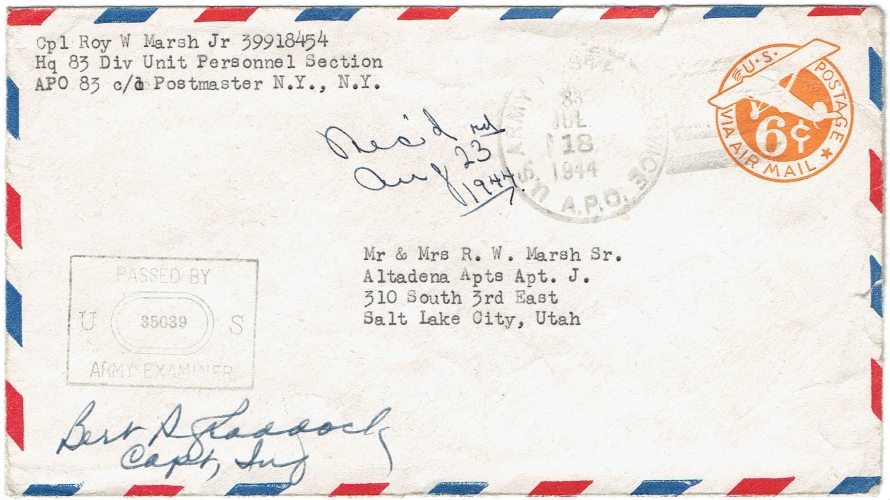 Cpl Roy W Marsh Jr 39918454
Hq 83 Div Unit Personnel Section
APO 83 c/o Postmaster N.Y., N.Y.
U.S. POSTAGE
6¢
VIA AIR MAIL
U.S. ARMY POSTAL SERVICE
A.P.O.
83
JUL
18
1944
Rec'd
Aug 23rd
1944.
Mr & Mrs R. W. Marsh Sr.
Altadena Apts Apt. J.
310 South 3rd East
Salt Lake City, Utah
PASSED BY
U 35039 S
ARMY EXAMINER
Bert A
Capt, Inf